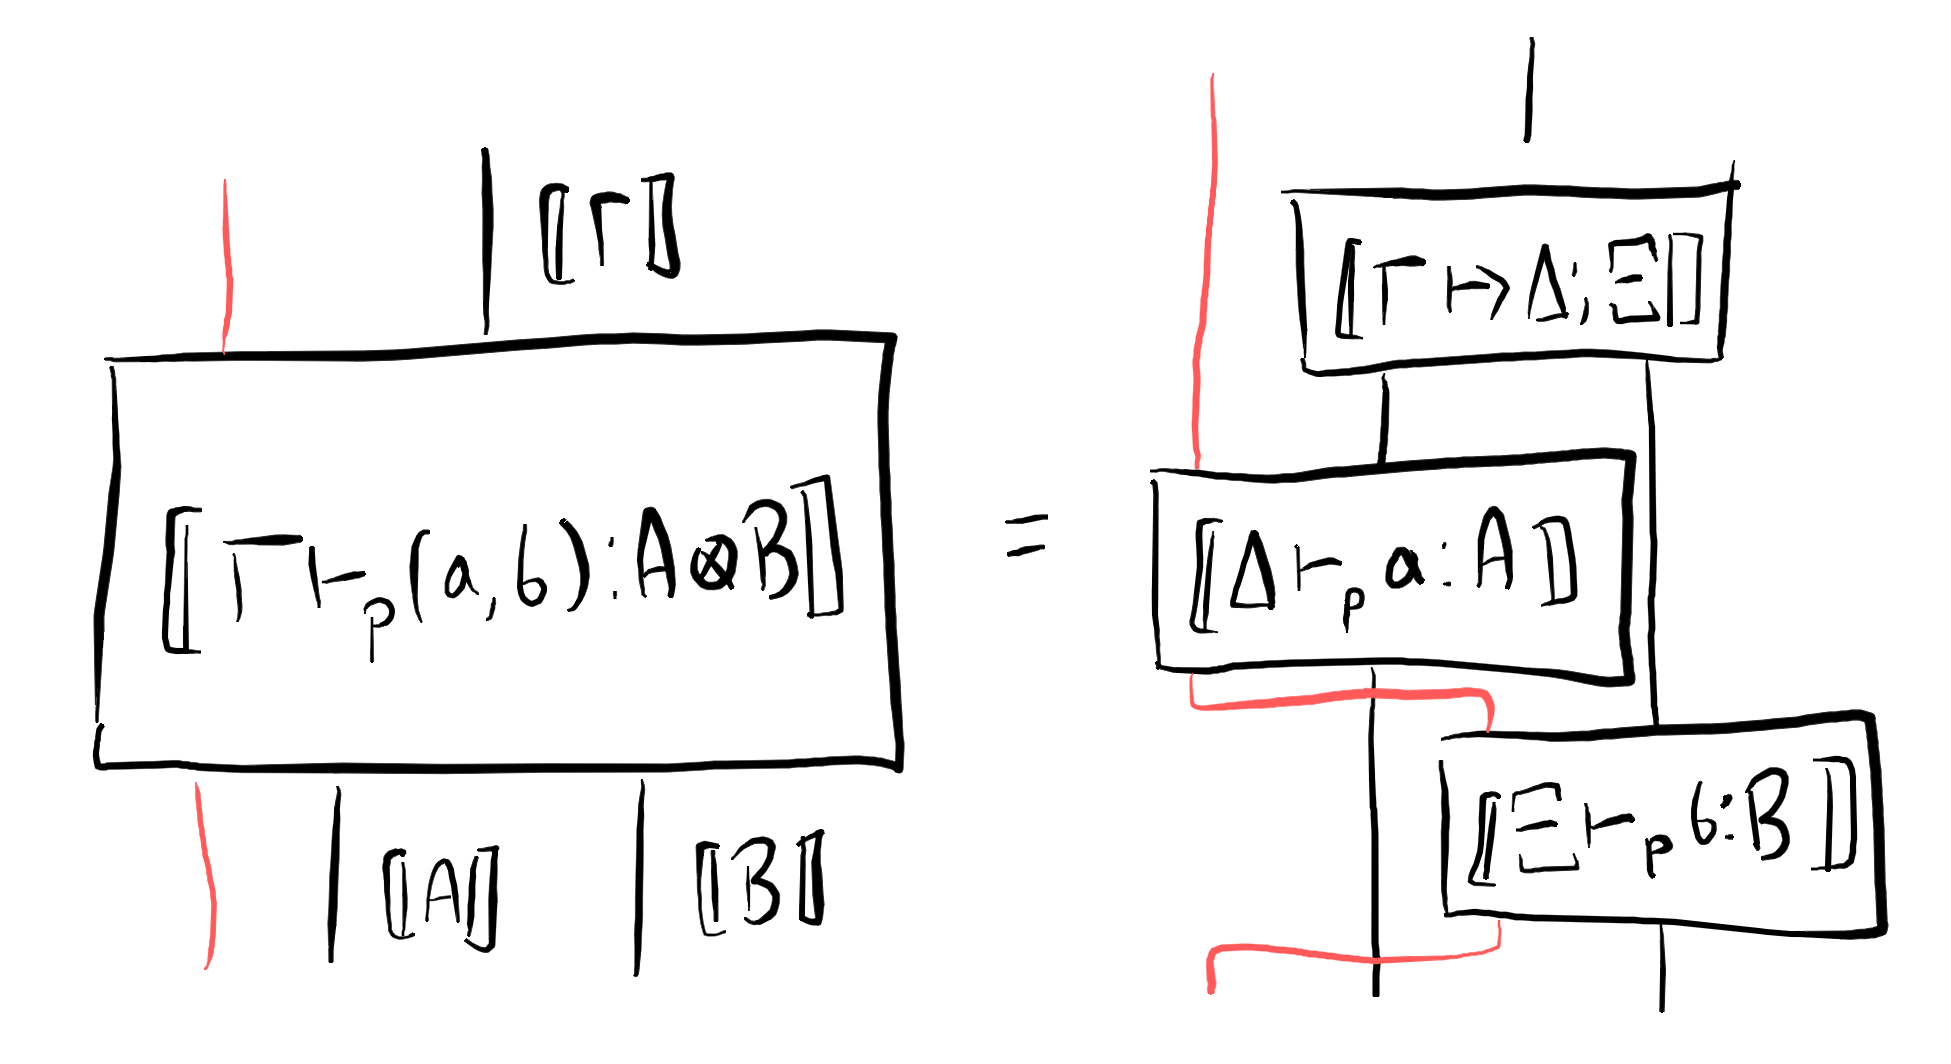 ⟦Γ⟧
⟦Γ ⊢ₚ (a, b) : A ⊗ B⟧
⟦A⟧ ⟦B⟧
=
⟦Γ ↦ Δ; Ξ⟧
⟦Δ ⊢ₚ a : A⟧
⟦Ξ ⊢ₚ b : B⟧